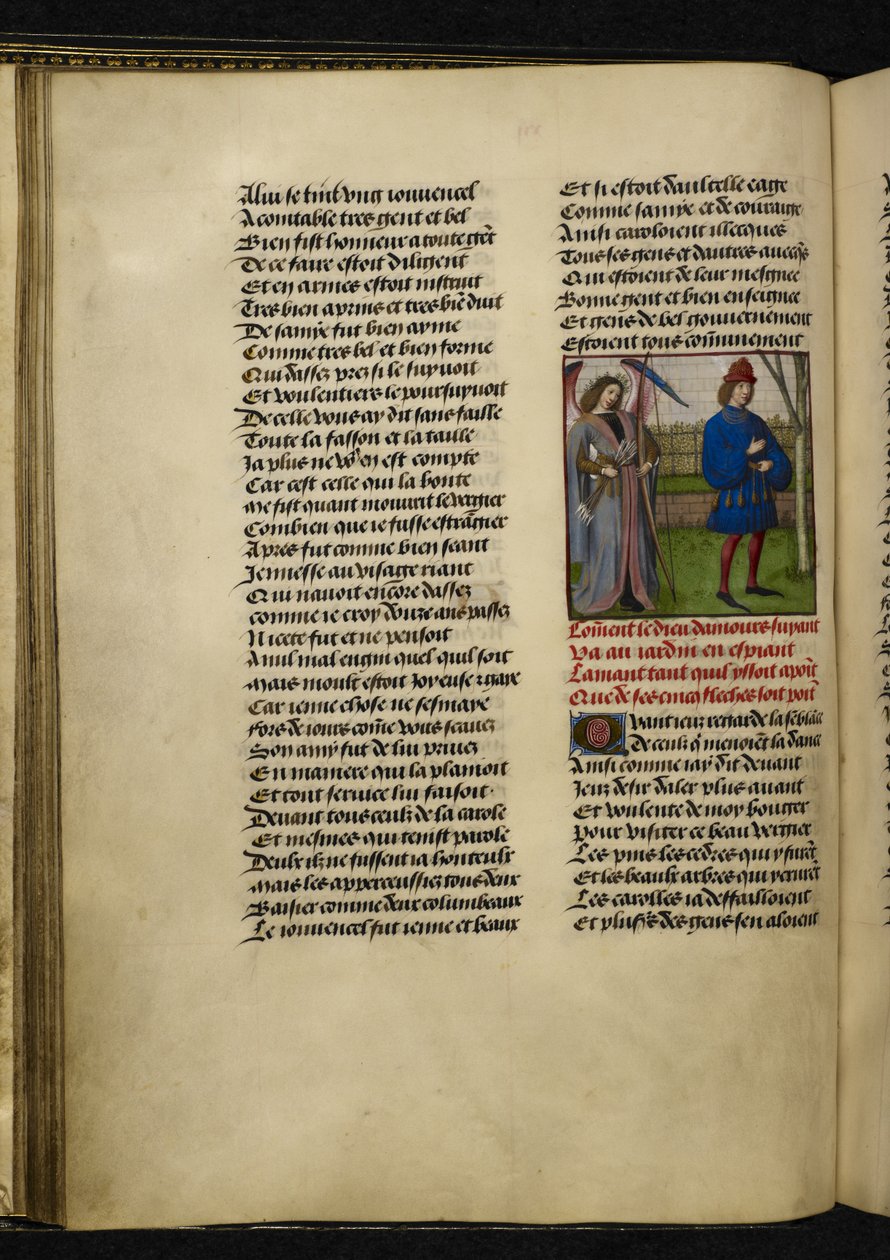 A lui se tint ung iouvencel
Acointable tres gent et bel
Bien fist honneur a toute gēt
De ce faire estoit diligent
Et en armes estoit instruit
Tres bien aprins et tres biē duit
De samye fut bien ayme
Comme tres bel et bien forme
Qui dassez prez si le suyvoit
Et voulentiers le poursuyvoit
De celle vous ay dit sans faille
Toute la fasson et la taille
Ja plus ne vo⁹ en est compte
Car cest celle qui la bonte
Me fist quant mouurit le vergier
Combien que ie fusse estrāgier
Apres fut comme bien seant
Jeunesse au visage riant
Qui nauoit encore dassez
comme ie croy douze ans passez
Nicete fut et ne pensoit
A nul mal engin quel quil soit
Mais moult estoit Joyeuse ⁊ gaye
Car ieune chose ne sesmaye
fors de iouer cōme vous scauez
Son amy fut de lui privez
En maniere qui la plamoit
Et tout seruice lui faisoit
Devant tous ceulx de la carole
Et mesmes qui tenist parole
Deulx ilz ne fussent ia honteulx
Mais les apperceussiez tous deux
Baisier comme deux columbeaux
Le iouvencel fut ieune et beaux
Et si estoit daultelle eage
Comme samye et de couraige
Ainsi caroloient illecques
Tous ses gens et dautres auecq̄s
Qui estoient de leur mesgnee
Bonne gent et bien enseignee
Et gens de bel gouuernement
Estoient tous cōmunement
Cōment le dieu damours suyant
Va au iardin en espiant
Lamant tant quil yssoit a poīt
Que de ses cinq fleches soit poīt
Quant ieuz regarde la sēblāce
De ceulx q̄ menoiēt la dance
Ainsi comme iay dit deuant
Jeuz desir daler plus auant
Et voulente de moy bouger
Pour visiter ce beau vergier
Les pins les cedres qui y furēt
Et les beaulx arbres qui y crurēt
Les carolles ia deffailloient
Et plus̄rs des gens sen aloient